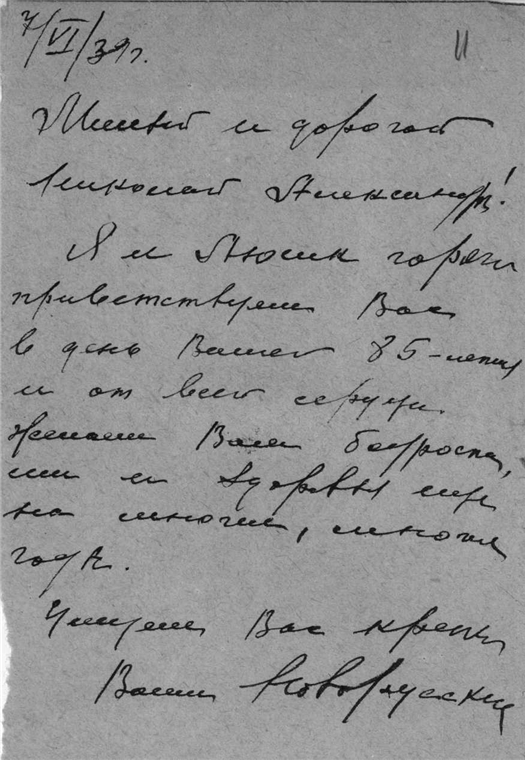 7/VI/39 г.
11
Милый и дорогой
Николай Александр.!
Я и Люсик горячо
приветствуем Вас
в день Вашего 85-летия
и от всего сердца
желаем Вам бодрости,
силы и здоровья еще
на многие, многие
года.
Целуем Вас крепко
Ваши Новорусский